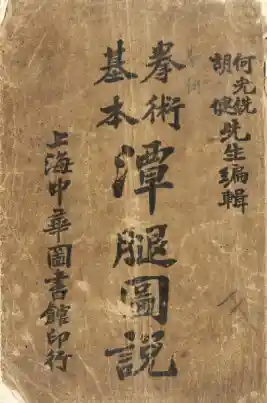 何光銑
胡
先生編輯
拳術
基本
潭腿圖説
上海中華圖書館印行